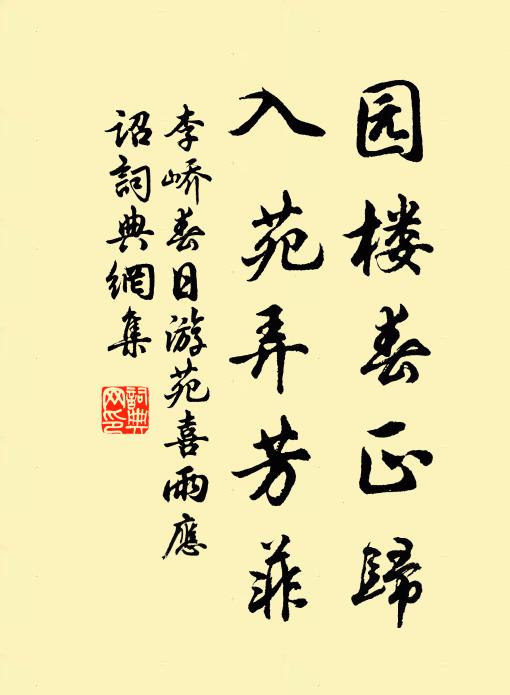 园楼春正歸
入苑弄芳菲
李峤春日游苑喜雨應
诏詞典網集
詞典
网印